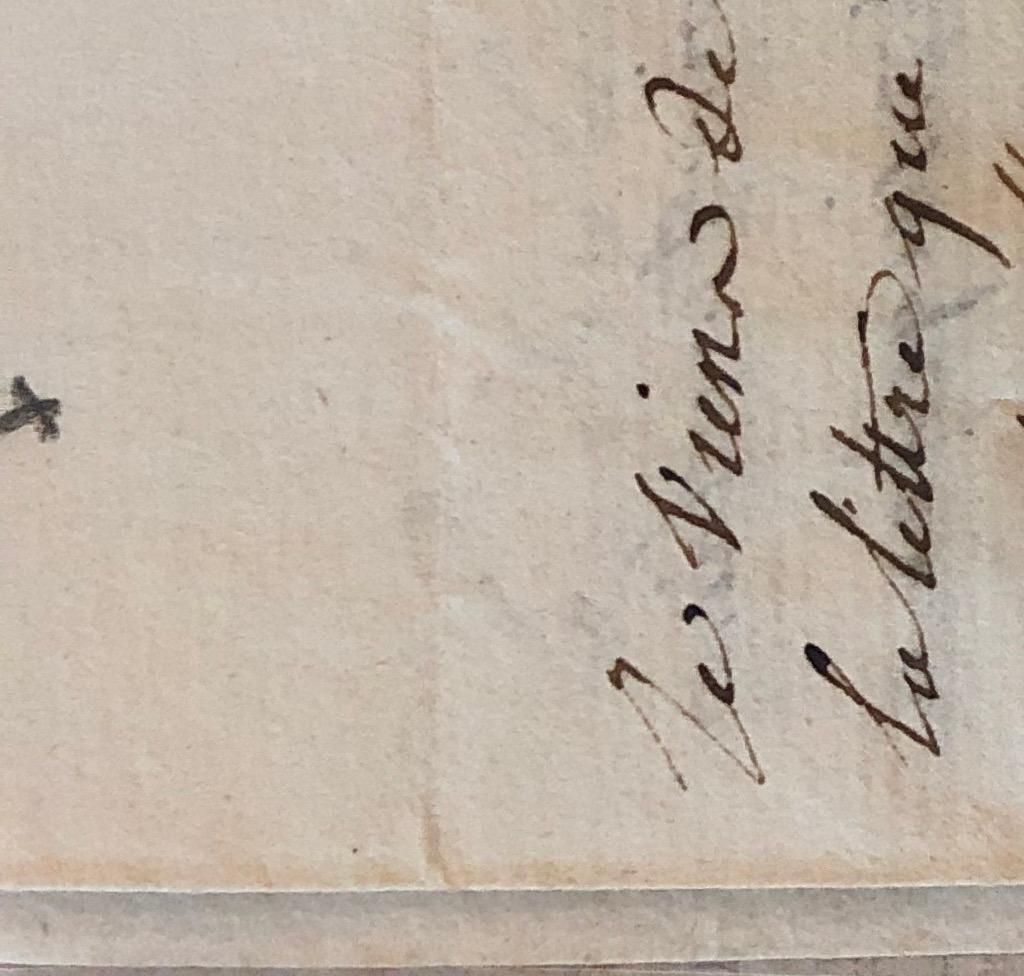 Je Viens de
La lettre que